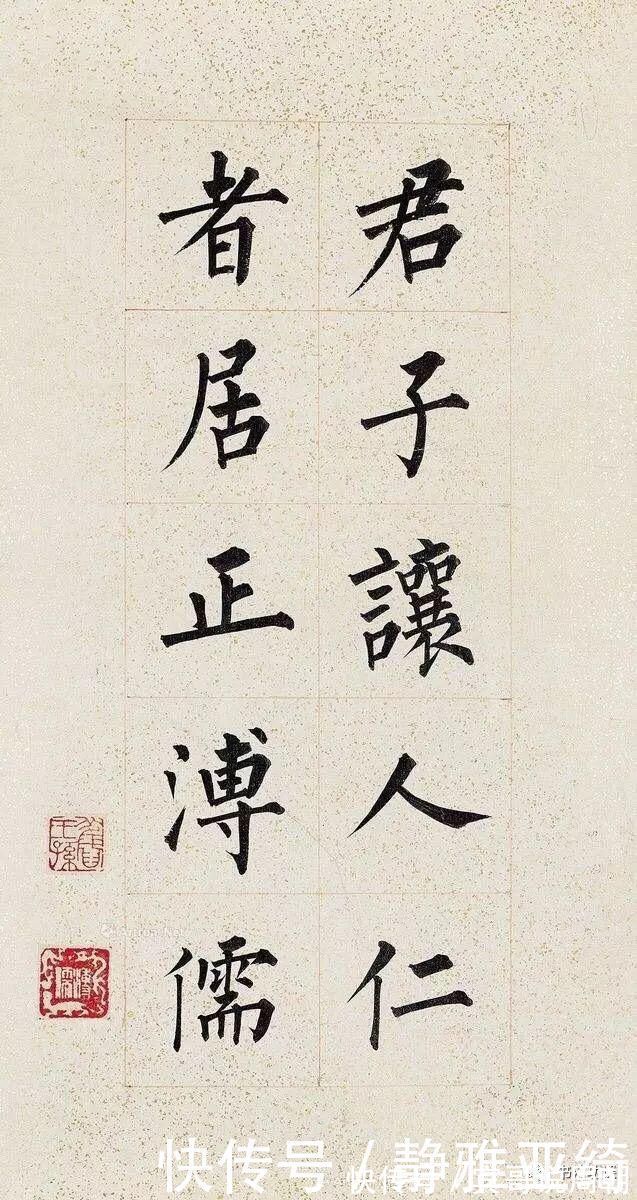 君子讓人仁
者居正溥儒
快传号/静雅亚绮